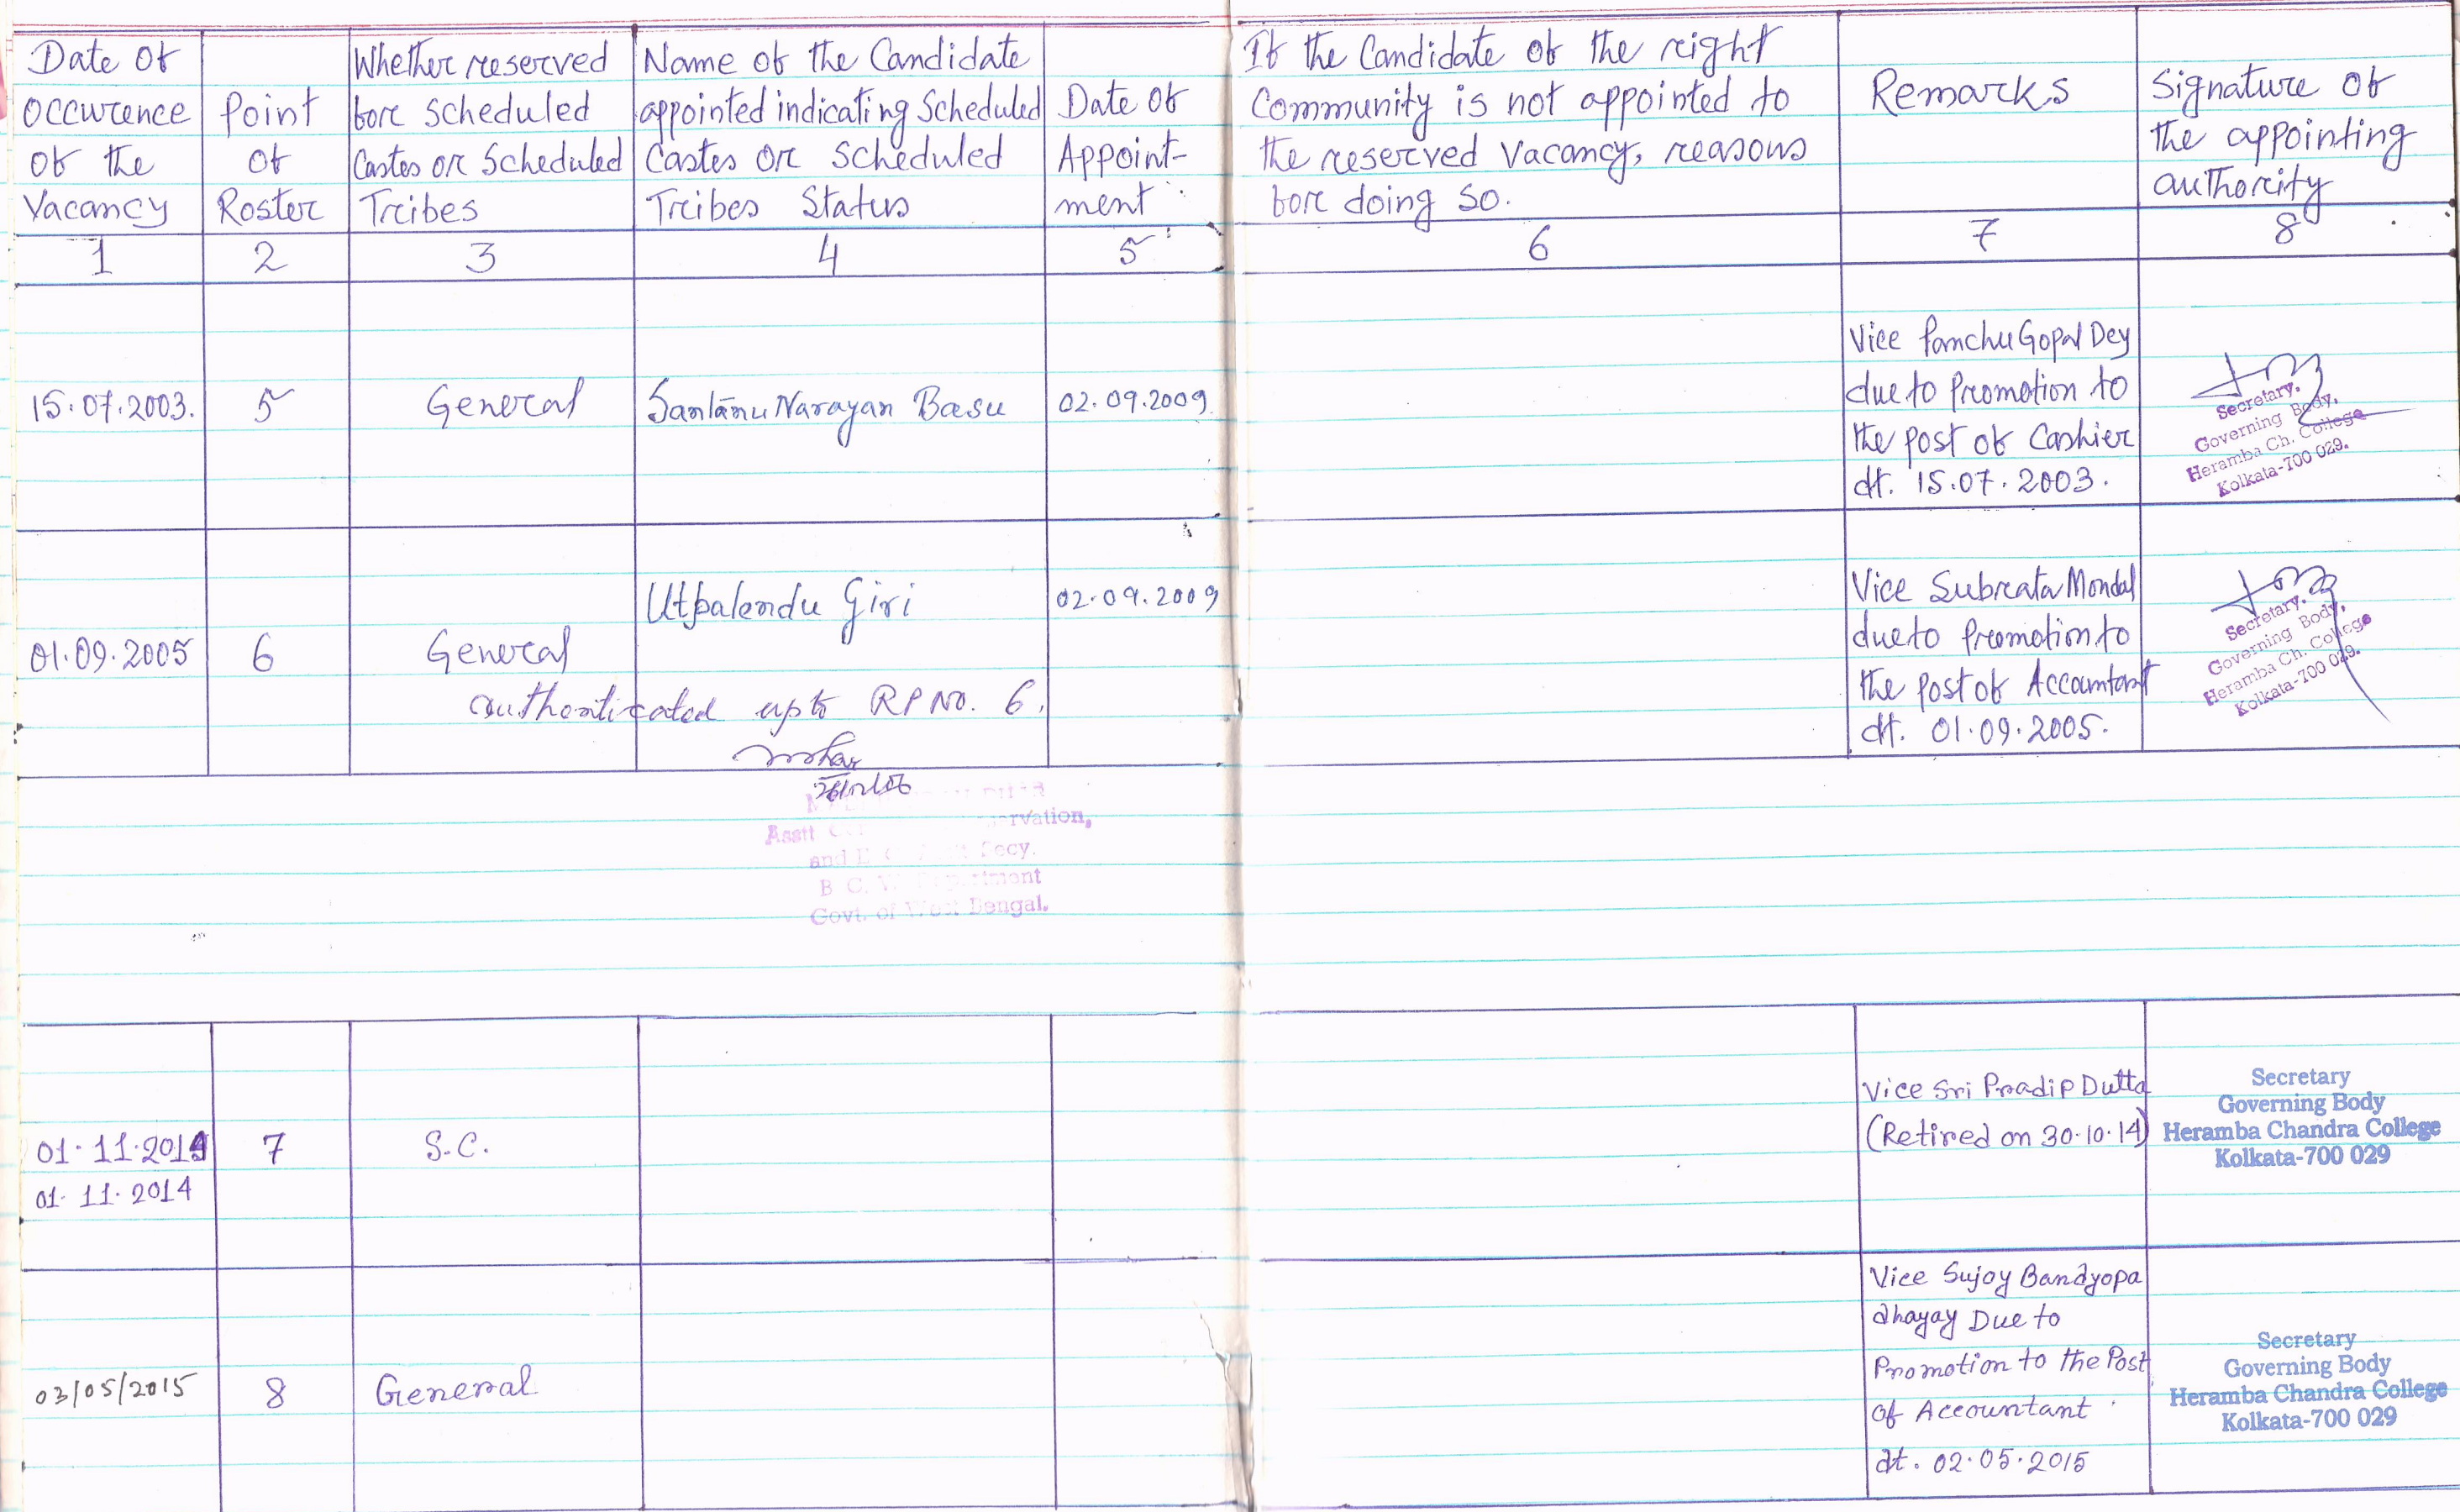 Date of
Occurence
of the
Vacancy
Point
of
Roster
Whether reserved
for Scheduled
Castes or Scheduled
Tribes
Name of the Candidate
appointed indicating Scheduled
Castes or Scheduled
Tribes Status
Date of
Appoint-
ment
If the Candidate of the right
Community is not appointed to
the reserved Vacancy, reasons
for doing so.
Remarks
Signature of
the appointing
authority
1
2
3
4
5
6
7
8
15.07.2003.
5
General
Santanu Narayan Basu
02.09.2009
Vice Panchu Gopal Dey
due to Promotion to
the post of Cashier
dt. 15.07.2003.
Secretary.
Governing Body,
Heramba Ch. College
Kolkata-700 029.
01.09.2005
6
General
Utpalendu Giri
02.09.2009
Vice Subrata Mondal
due to Promotion to
the post of Accountant
dt. 01.09.2005.
Secretary.
Governing Body,
Heramba Ch. College
Kolkata-700 029.
authenticated upto RP No. 6.
Asstt
and Secy.
B C.
Govt. of West Bengal.
01.11.2014
01.11.2014
7
S.C.
Vice Sri Pradip Dutta
(Retired on 30.10.14)
Secretary
Governing Body
Heramba Chandra College
Kolkata-700 029
03/05/2015
8
General
Vice Sujoy Bandyopa
dhayay Due to
Promotion to the Post
of Accountant
dt. 02.05.2015
Secretary
Governing Body
Heramba Chandra College
Kolkata-700 029